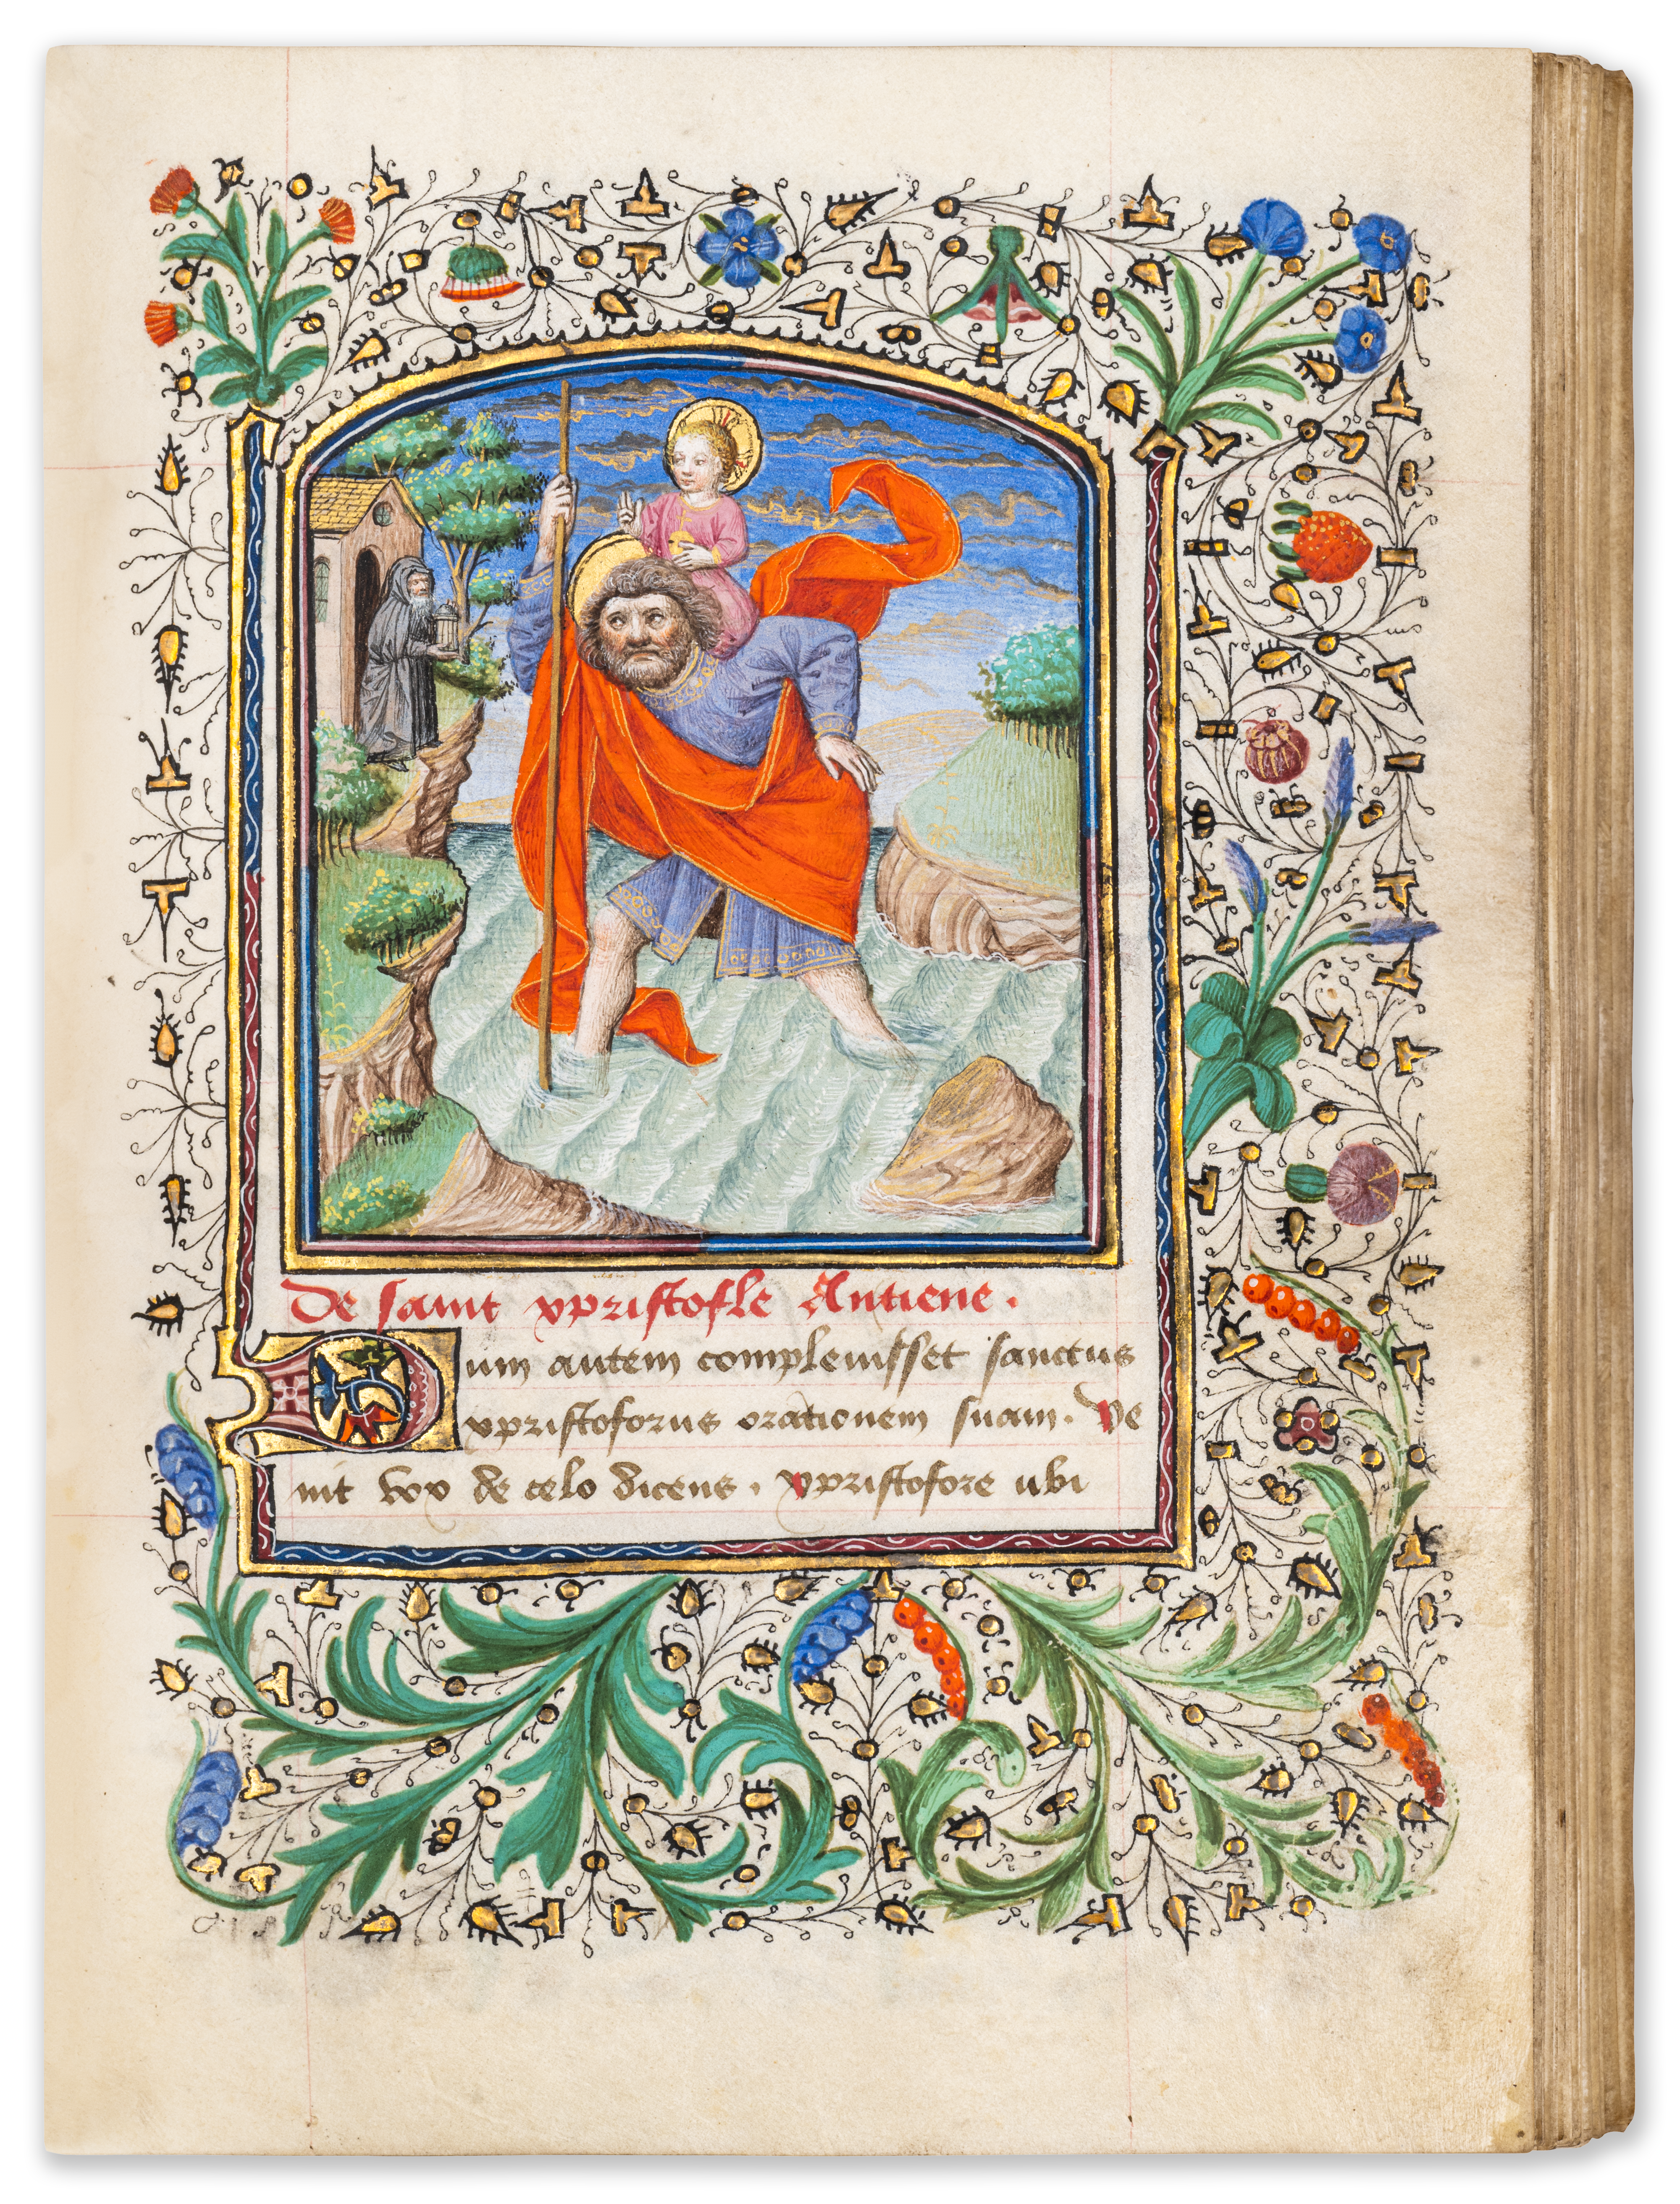 De saint xpristofle Antiene.
Dum autem complenisset sanctus
xpristoforus orationem suam. Ve
nit vox de celo dicens. xpristofore ubi